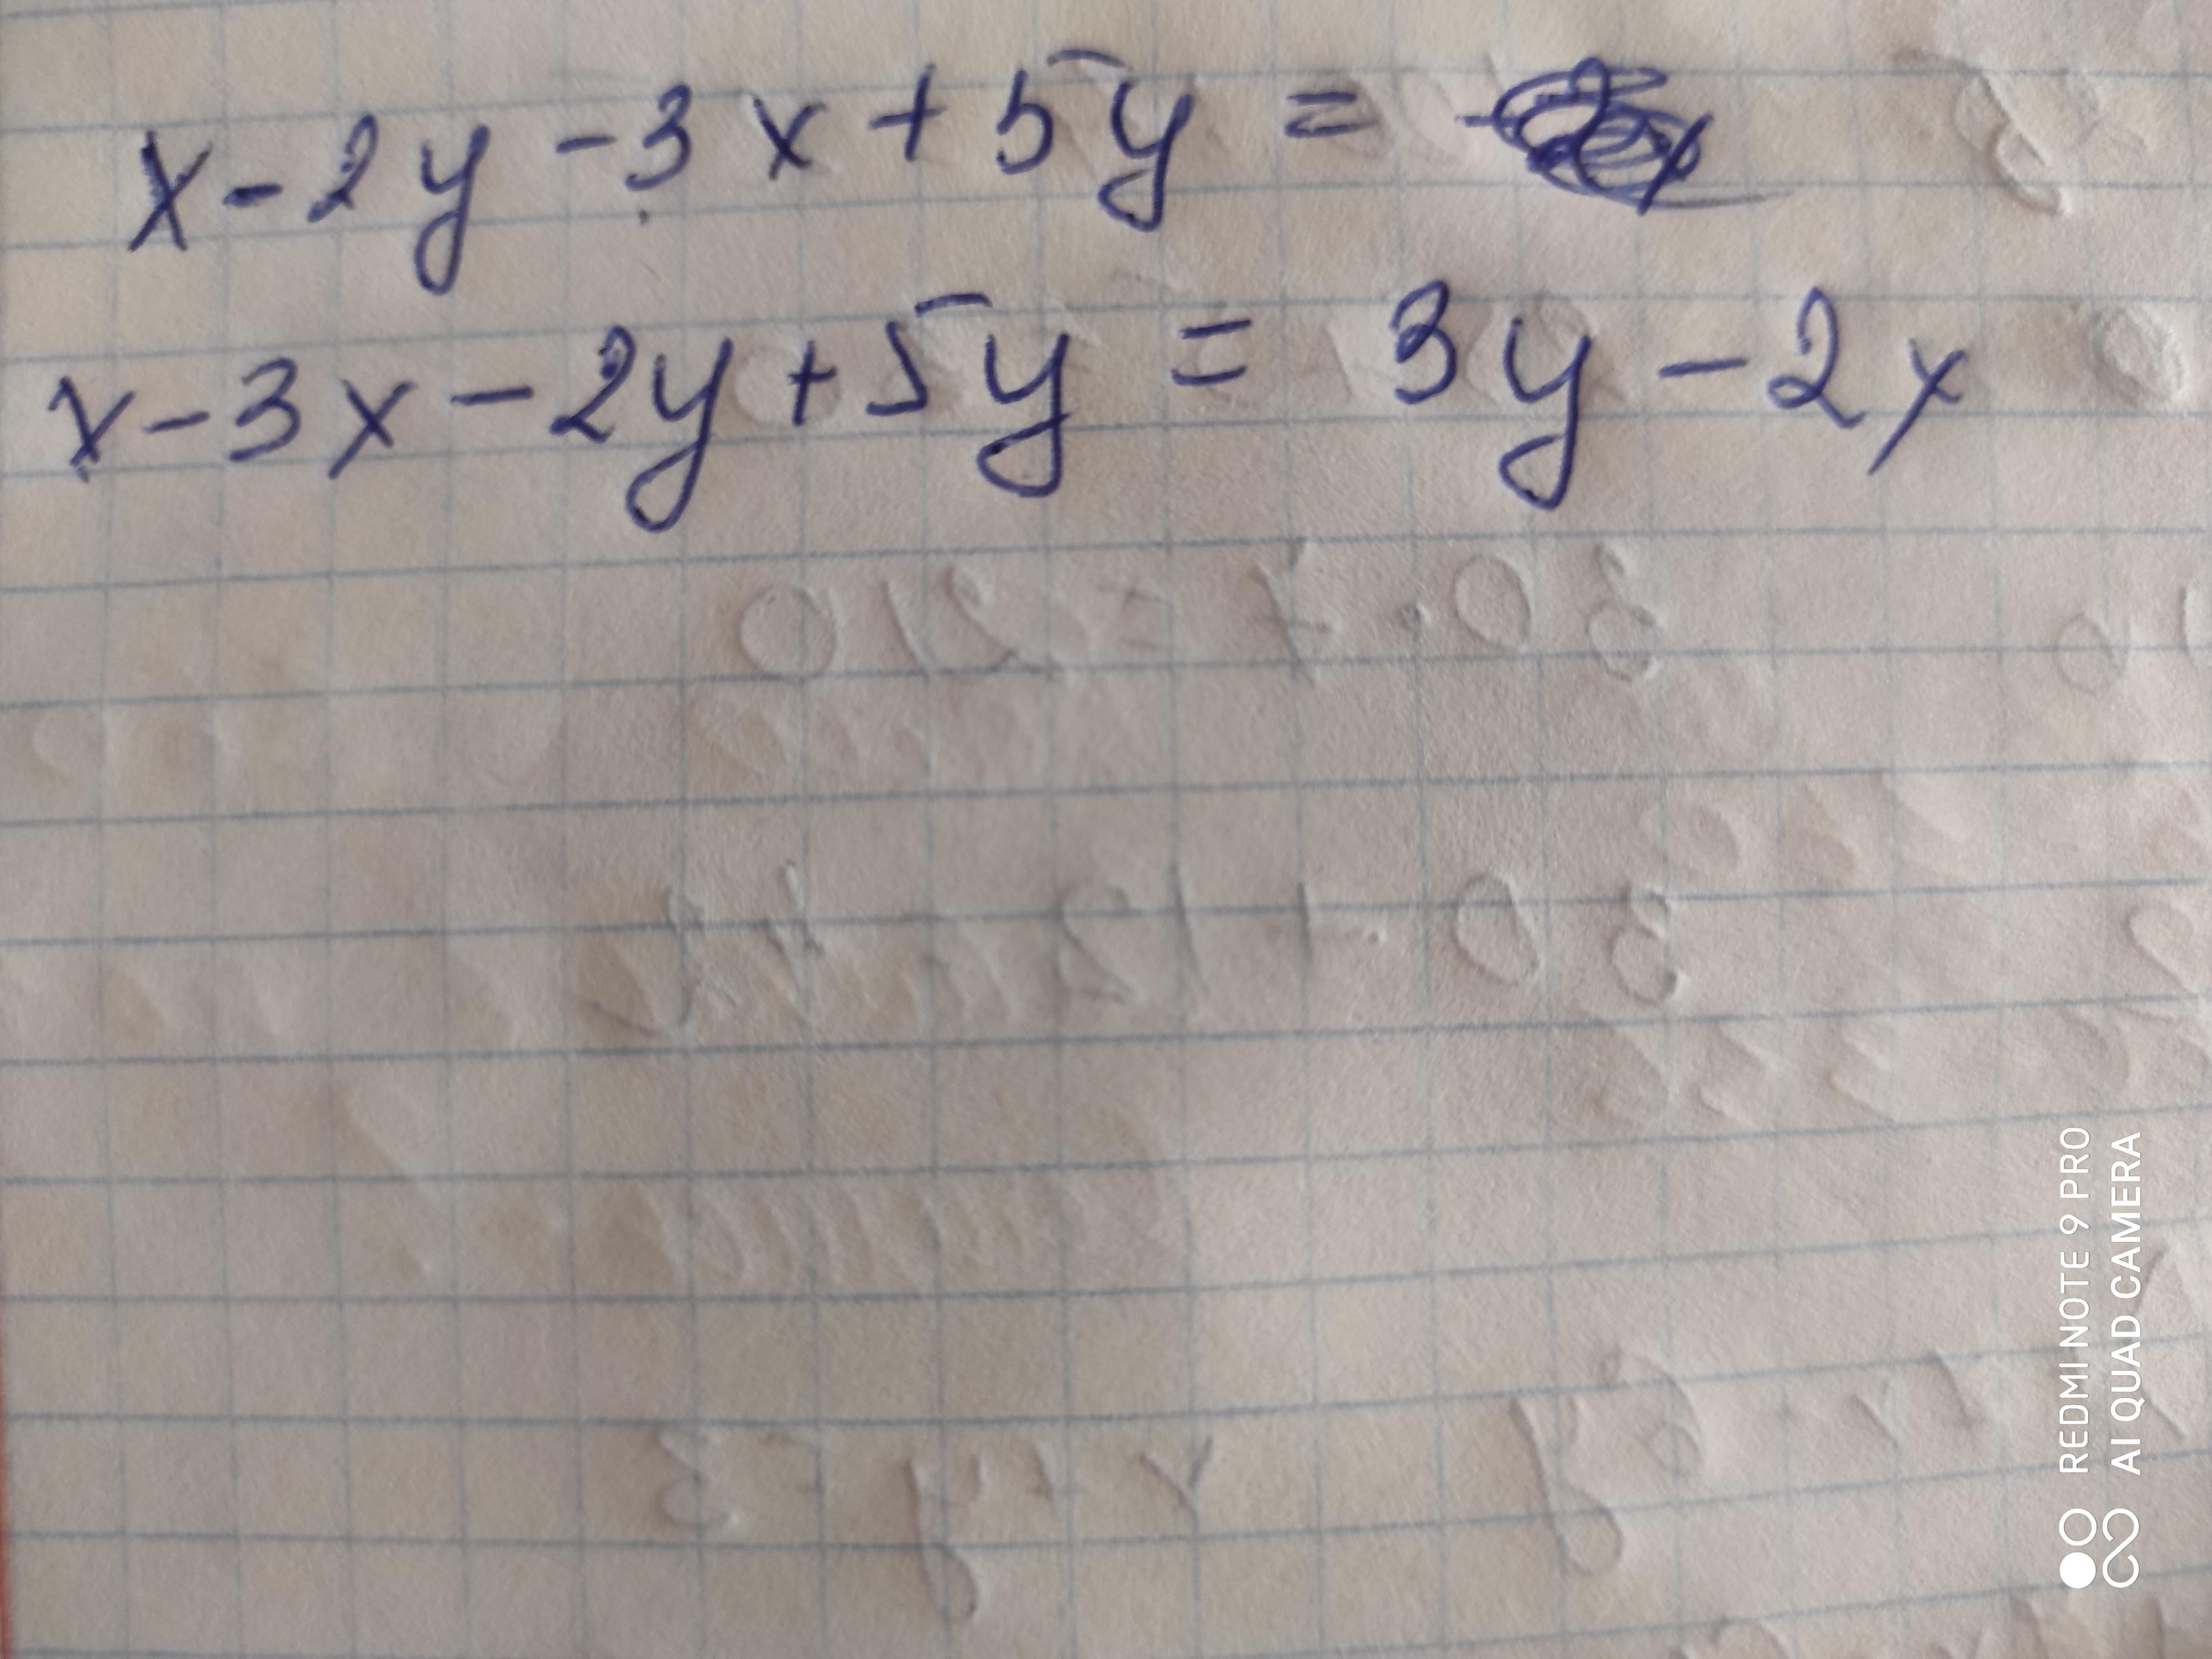 x - 2y - 3x + 5y =
x - 3x - 2y + 5y = 3y - 2x
REDMI NOTE 9 PRO
AI QUAD CAMERA